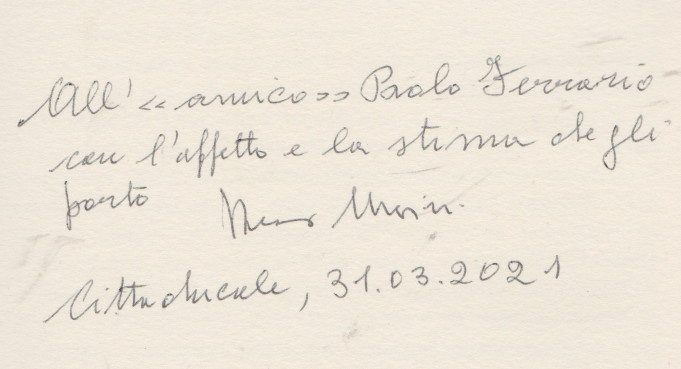 All' «amico» Paolo Ferrario
con l'affetto e la stima che gli
porto
Cittaducale, 31.03.2021